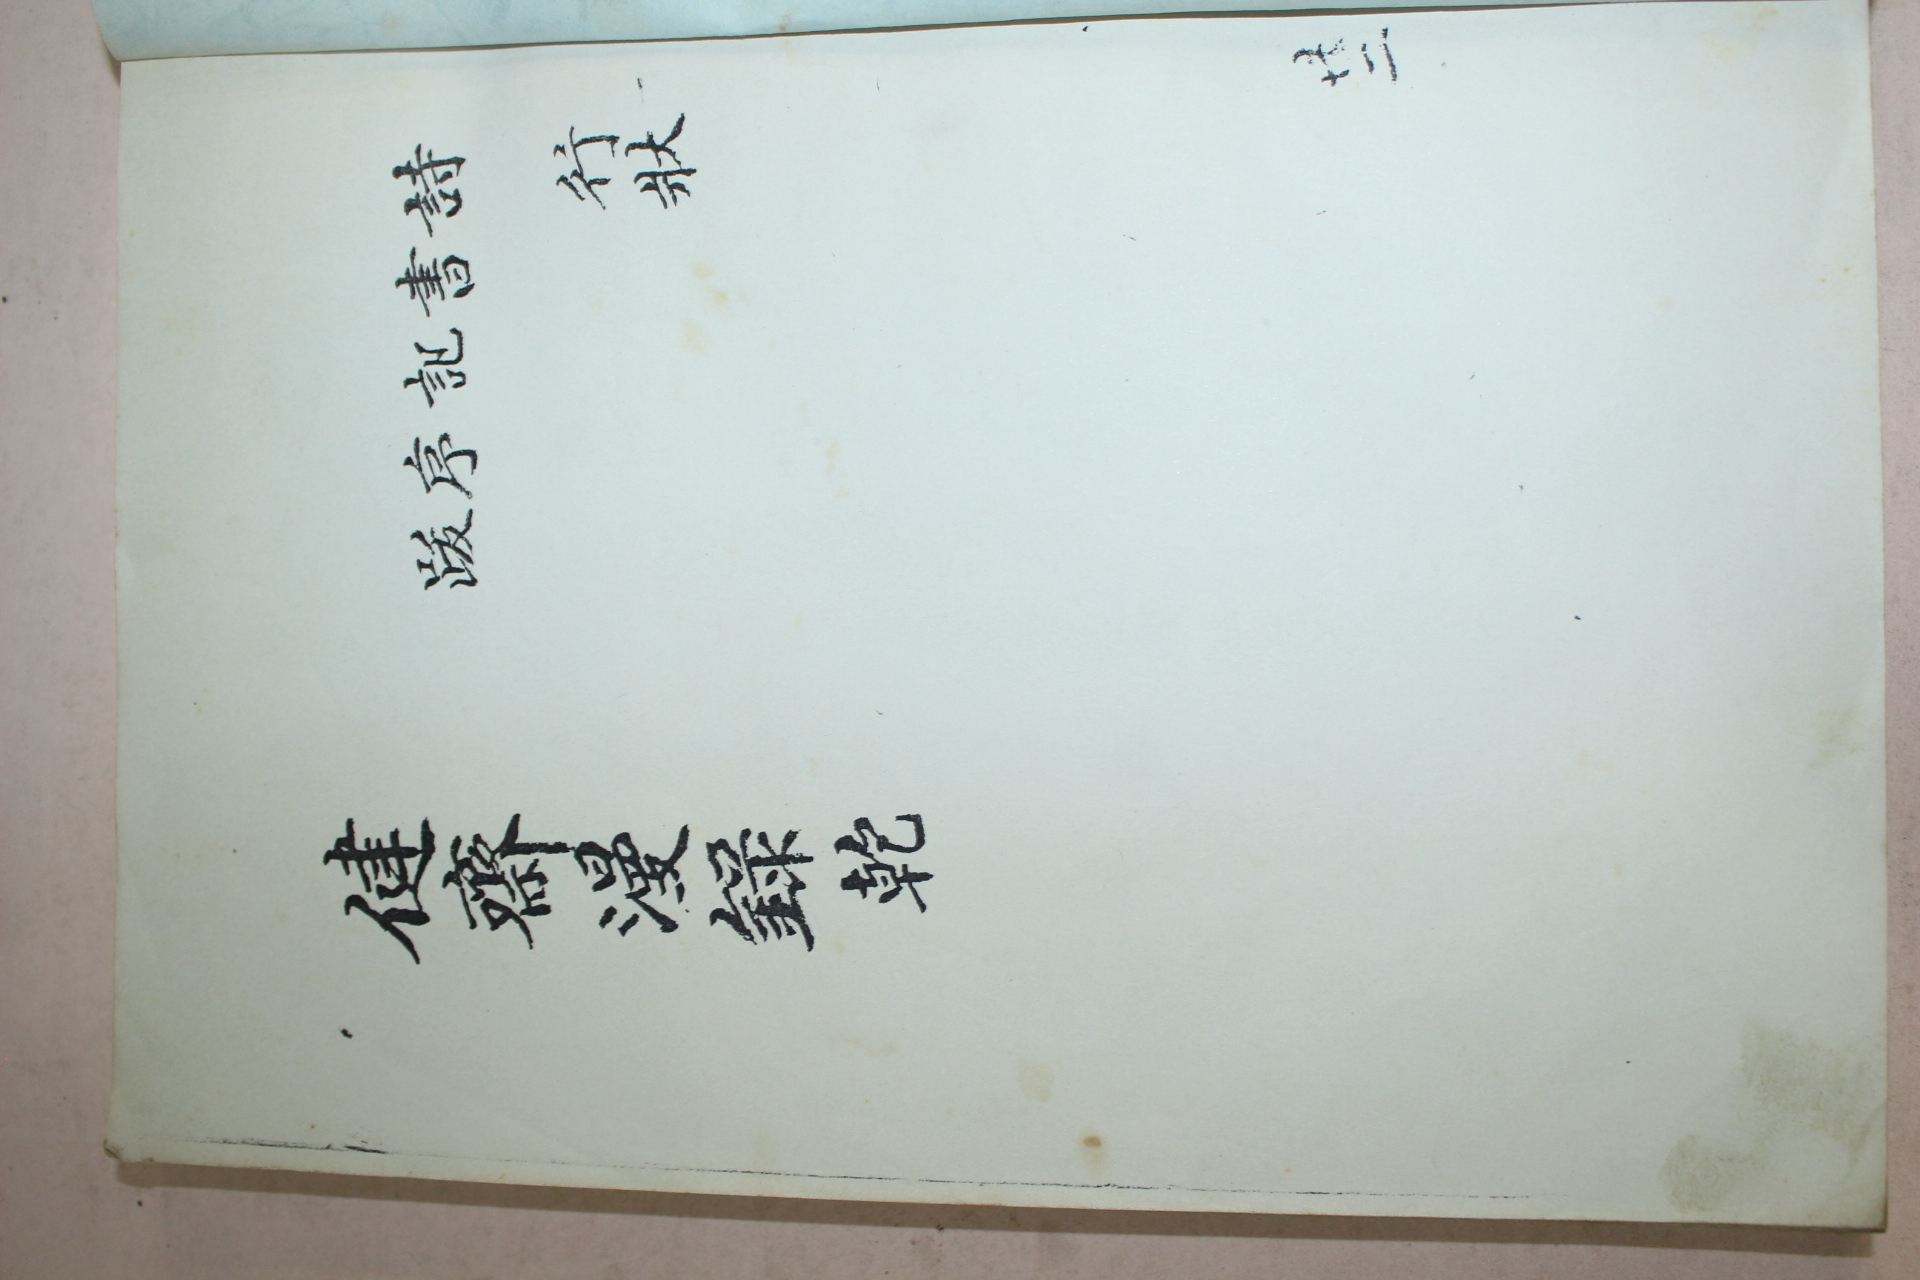 詩書記序跋
行狀
共二
健齋漫錄 乾